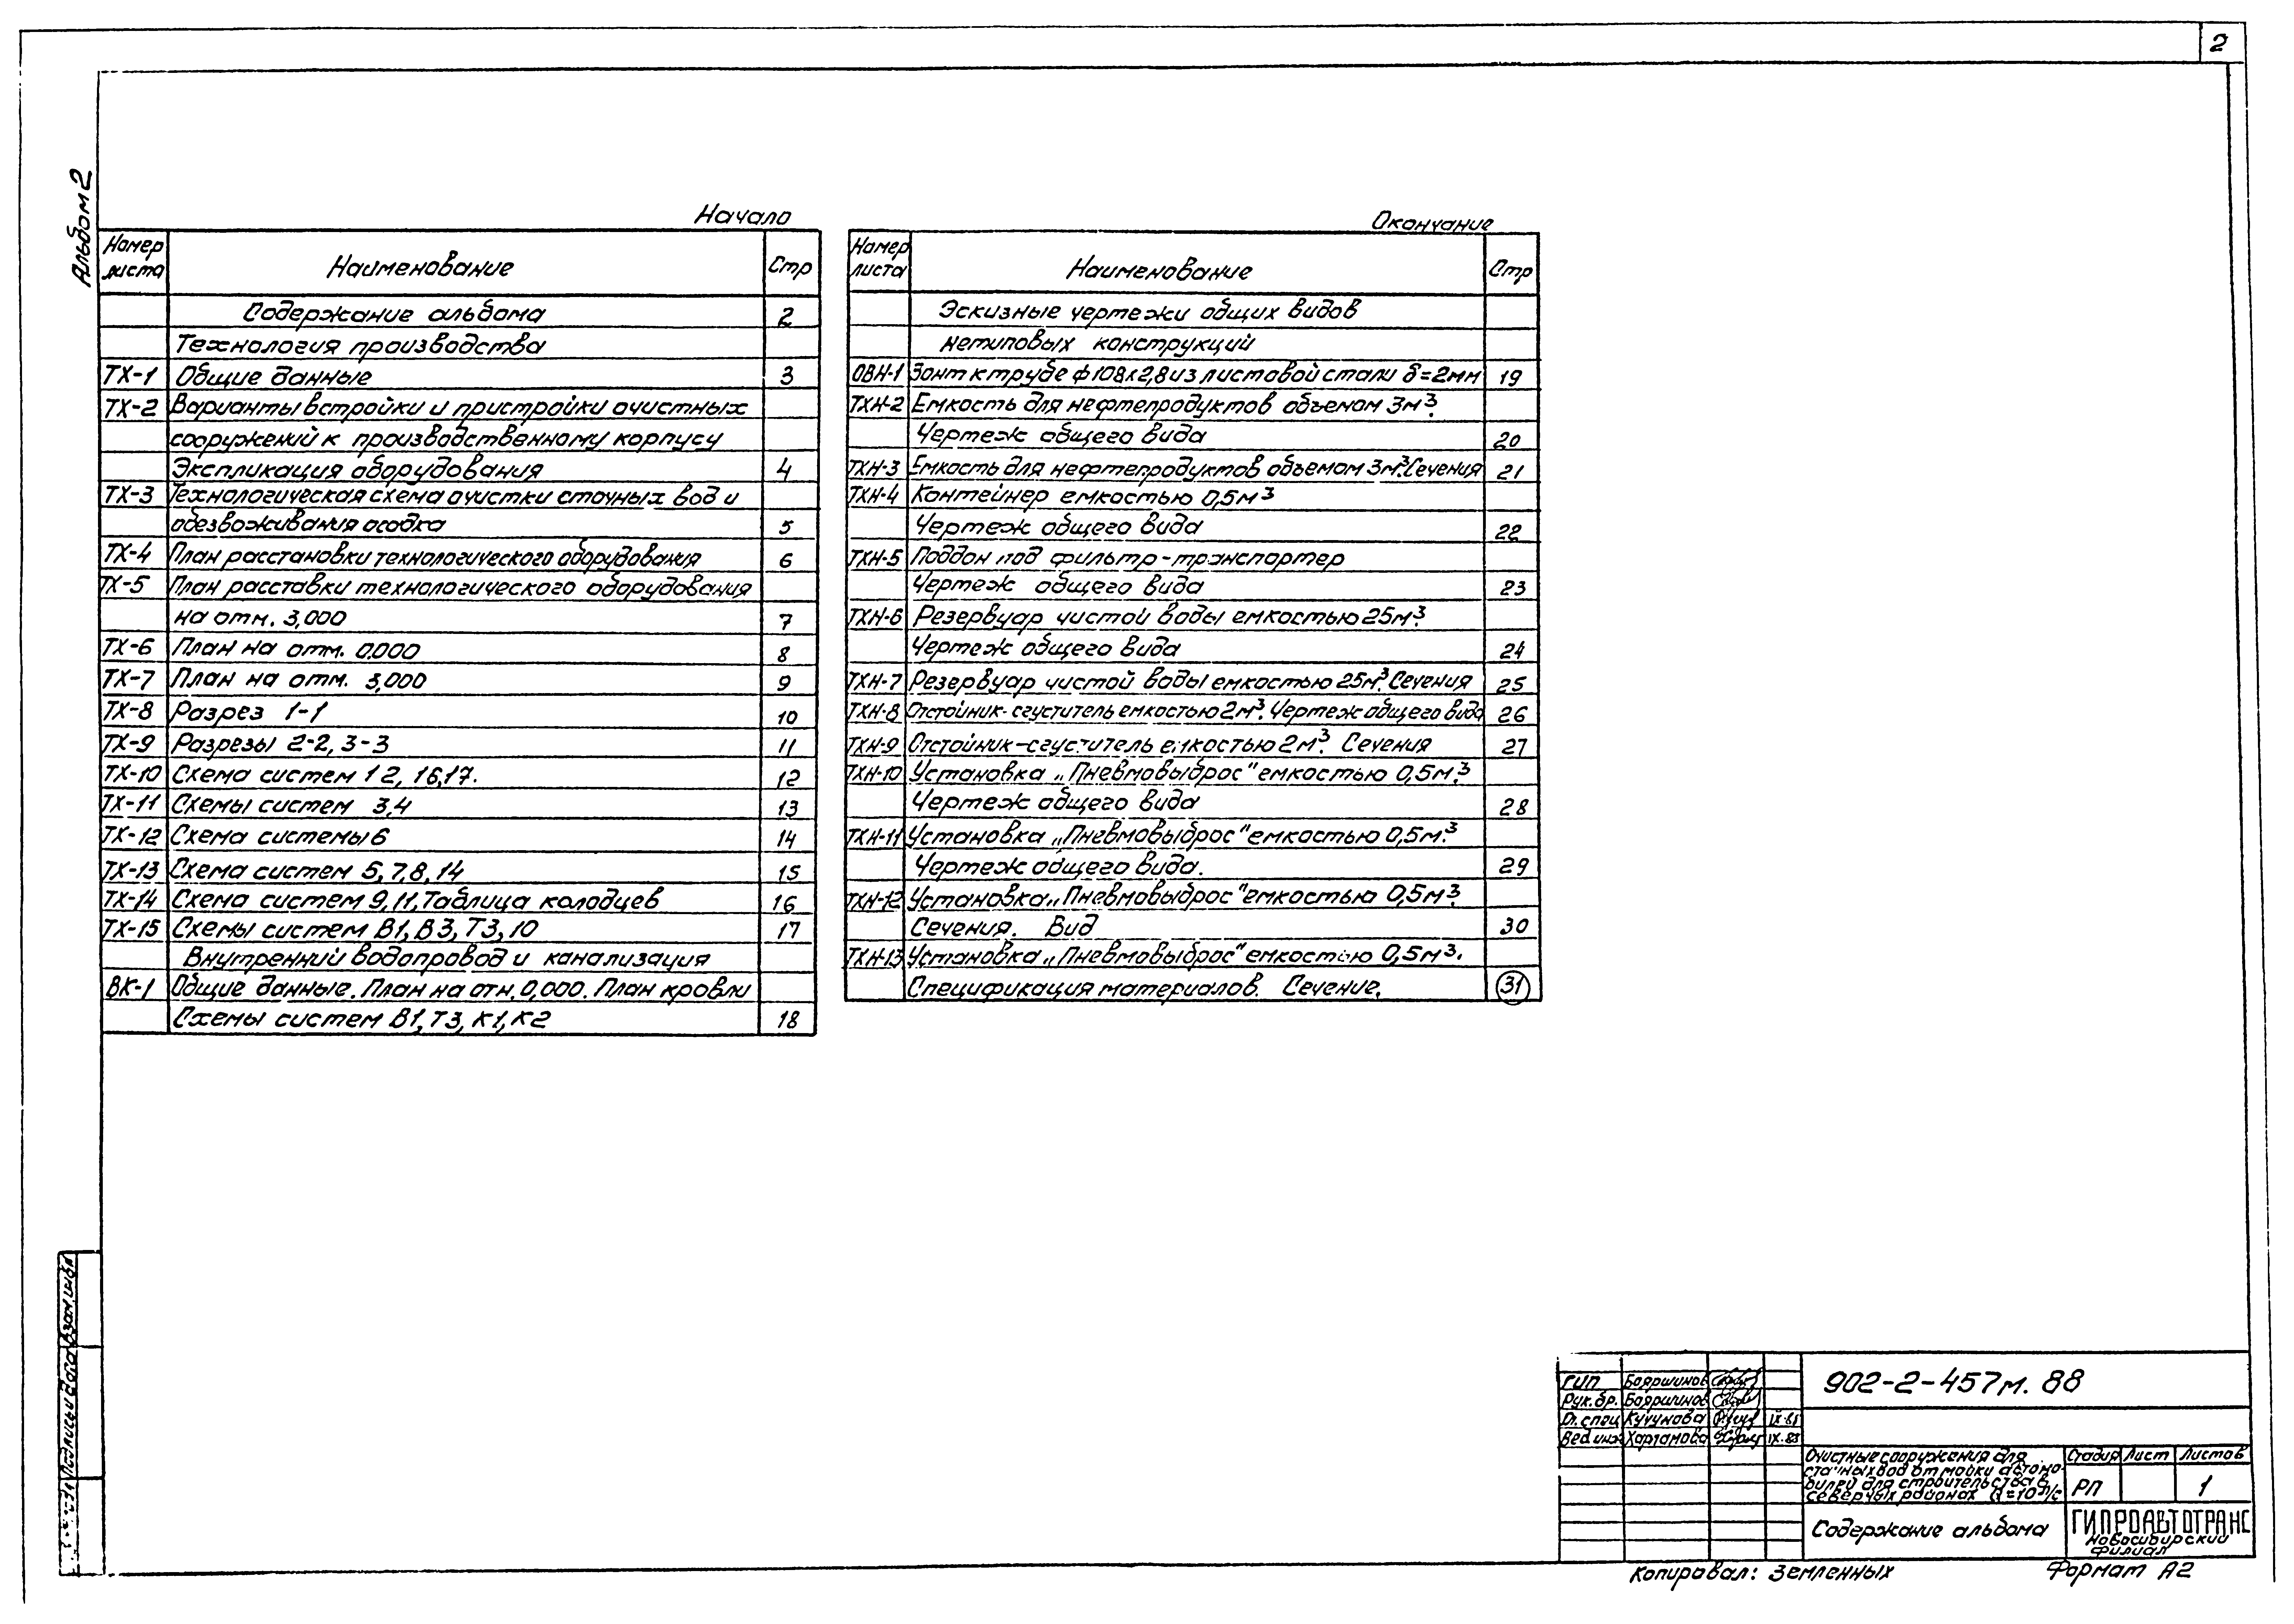 2
Альбом 2
Начало
Номер листа Наименование Стр
Содержание альбома 2
Технология производства
ТХ-1 Общие данные 3
ТХ-2 Варианты встройки и пристройки очистных
сооружений к производственному корпусу
Экспликация оборудования 4
ТХ-3 Технологическая схема очистки сточных вод и
обезвоживания осадка 5
ТХ-4 План расстановки технологического оборудования 6
ТХ-5 План расставки технологического оборудования
на отм. 3,000 7
ТХ-6 План на отм. 0,000 8
ТХ-7 План на отм. 3,000 9
ТХ-8 Разрез 1-1 10
ТХ-9 Разрезы 2-2, 3-3 11
ТХ-10 Схема систем 1 2, 16,17. 12
ТХ-11 Схемы систем 3,4 13
ТХ-12 Схема системы 6 14
ТХ-13 Схема систем 5, 7, 8, 14 15
ТХ-14 Схема систем 9, 11, Таблица колодцев 16
ТХ-15 Схемы систем В1, В3, Т3, 10 17
Внутренний водопровод и канализация
ВК-1 Общие данные. План на отм. 0,000. План кровли
Схемы систем В1, Т3, К1, К2 18
Окончание
Номер листа Наименование Стр
Эскизные чертежи общих видов
нетиповых конструкций
ОВН-1 Зонт к трубе ф108х2,8 из листовой стали δ=2мм 19
ТХН-2 Емкость для нефтепродуктов объемом 3м³.
Чертеж общего вида 20
ТХН-3 Емкость для нефтепродуктов объемом 3м³. Сечения 21
ТХН-4 Контейнер емкостью 0,5м³
Чертеж общего вида 22
ТХН-5 Поддон под фильтр-транспортер
Чертеж общего вида 23
ТХН-6 Резервуар чистой воды емкостью 25м³.
Чертеж общего вида 24
ТХН-7 Резервуар чистой воды емкостью 25м³. Сечения 25
ТХН-8 Отстойник-сгуститель емкостью 2м³. Чертеж общего вида 26
ТХН-9 Отстойник-сгуститель емкостью 2м³. Сечения 27
ТХН-10 Установка „Пневмовыброс" емкостью 0,5м³.
Чертеж общего вида 28
ТХН-11 Установка „Пневмовыброс" емкостью 0,5м³.
Чертеж общего вида. 29
ТХН-12 Установка „Пневмовыброс" емкостью 0,5м³.
Сечения. Вид 30
ТХН-13 Установка „Пневмовыброс" емкостью 0,5м³.
Спецификация материалов. Сечение. 31
Подпись и дата Взам. инв.
ГИП Бояршинов
Рук. бр. Бояршинов
Гл. спец Кучумова
Вед инж Хартанова IX.88
902-2-457м. 88
Очистные сооружения для
сточных вод от мойки автомо-
билей для строительства в
северных районах Q=10 л/с
Стадия Лист Листов
РП 1
Содержание альбома
ГИПРОАВТОТРАНС
Новосибирский
филиал
Копировал: Земленных
Формат А2